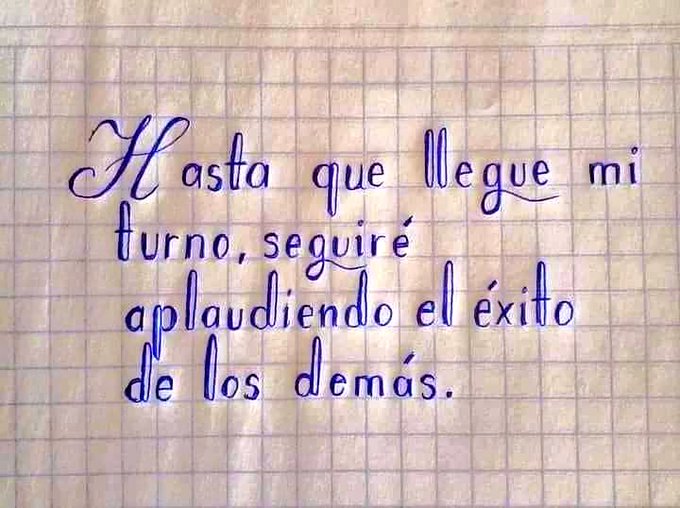 Hasta que llegue mi
turno, seguiré
aplaudiendo el éxito
de los demás.